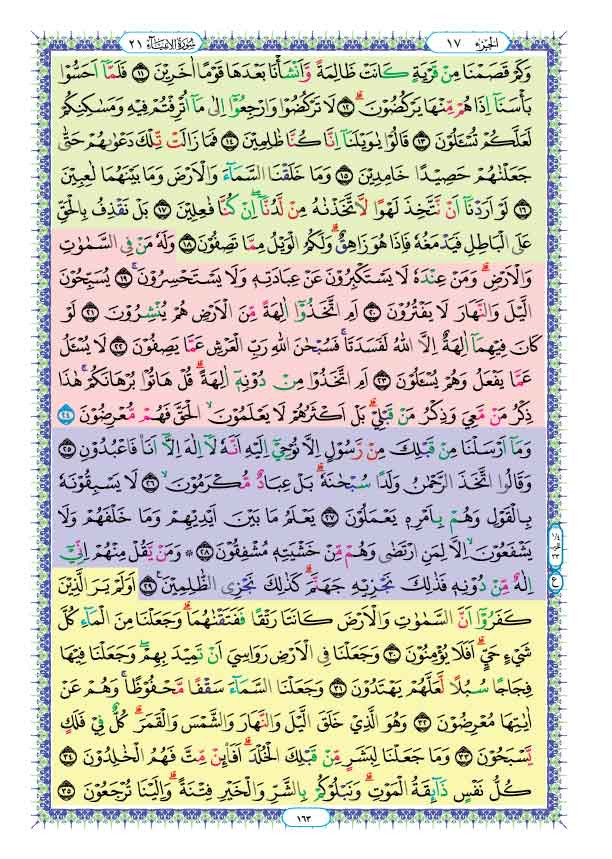 اَلْجُزْء ١٧
سُوْرَةُ الْاَنْبِيَآء ٢١
وَكَمْ قَصَمْنَا مِنْ قَرْيَةٍ كَانَتْ ظَالِمَةً وَّاَنْشَأْنَا بَعْدَهَا قَوْمًا اٰخَرِيْنَ ۝١١ فَلَمَّآ اَحَسُّوْا
بَأْسَنَآ اِذَا هُمْ مِّنْهَا يَرْكُضُوْنَ ۝١٢ لَا تَرْكُضُوْا وَارْجِعُوْٓا اِلٰى مَآ اُتْرِفْتُمْ فِيْهِ وَمَسٰكِنِكُمْ
لَعَلَّكُمْ تُسْـَٔلُوْنَ ۝١٣ قَالُوْا يٰوَيْلَنَآ اِنَّا كُنَّا ظٰلِمِيْنَ ۝١٤ فَمَا زَالَتْ تِّلْكَ دَعْوٰىهُمْ حَتّٰى
جَعَلْنٰهُمْ حَصِيْدًا خَامِدِيْنَ ۝١٥ وَمَا خَلَقْنَا السَّمَآءَ وَالْاَرْضَ وَمَا بَيْنَهُمَا لٰعِبِيْنَ
۝١٦ لَوْ اَرَدْنَآ اَنْ نَّتَّخِذَ لَهْوًا لَّاتَّخَذْنٰهُ مِنْ لَّدُنَّآ ۖ اِنْ كُنَّا فٰعِلِيْنَ ۝١٧ بَلْ نَقْذِفُ بِالْحَقِّ
عَلَى الْبَاطِلِ فَيَدْمَغُهٗ فَاِذَا هُوَ زَاهِقٌ ۗ وَلَكُمُ الْوَيْلُ مِمَّا تَصِفُوْنَ ۝١٨ وَلَهٗ مَنْ فِى السَّمٰوٰتِ
وَالْاَرْضِ ۗ وَمَنْ عِنْدَهٗ لَا يَسْتَكْبِرُوْنَ عَنْ عِبَادَتِهٖ وَلَا يَسْتَحْسِرُوْنَ ۚ ۝١٩ يُسَبِّحُوْنَ
الَّيْلَ وَالنَّهَارَ لَا يَفْتُرُوْنَ ۝٢٠ اَمِ اتَّخَذُوْٓا اٰلِهَةً مِّنَ الْاَرْضِ هُمْ يُنْشِرُوْنَ ۝٢١ لَوْ
كَانَ فِيْهِمَآ اٰلِهَةٌ اِلَّا اللّٰهُ لَفَسَدَتَا ۚ فَسُبْحٰنَ اللّٰهِ رَبِّ الْعَرْشِ عَمَّا يَصِفُوْنَ ۝٢٢ لَا يُسْـَٔلُ
عَمَّا يَفْعَلُ وَهُمْ يُسْـَٔلُوْنَ ۝٢٣ اَمِ اتَّخَذُوْا مِنْ دُوْنِهٖٓ اٰلِهَةً ۗ قُلْ هَاتُوْا بُرْهَانَكُمْ ۚ هٰذَا
ذِكْرُ مَنْ مَّعِيَ وَذِكْرُ مَنْ قَبْلِيْ ۗ بَلْ اَكْثَرُهُمْ لَا يَعْلَمُوْنَ ۙ الْحَقَّ فَهُمْ مُّعْرِضُوْنَ ۝٢٤
وَمَآ اَرْسَلْنَا مِنْ قَبْلِكَ مِنْ رَّسُوْلٍ اِلَّا نُوْحِيْٓ اِلَيْهِ اَنَّهٗ لَآ اِلٰهَ اِلَّآ اَنَا فَاعْبُدُوْنِ ۝٢٥
وَقَالُوا اتَّخَذَ الرَّحْمٰنُ وَلَدًا سُبْحٰنَهٗ ۗ بَلْ عِبَادٌ مُّكْرَمُوْنَ ۙ ۝٢٦ لَا يَسْبِقُوْنَهٗ
بِالْقَوْلِ وَهُمْ بِاَمْرِهٖ يَعْمَلُوْنَ ۝٢٧ يَعْلَمُ مَا بَيْنَ اَيْدِيْهِمْ وَمَا خَلْفَهُمْ وَلَا
يَشْفَعُوْنَ ۙ اِلَّا لِمَنِ ارْتَضٰى وَهُمْ مِّنْ خَشْيَتِهٖ مُشْفِقُوْنَ ۝٢٨ * وَمَنْ يَّقُلْ مِنْهُمْ اِنِّيْٓ
اِلٰهٌ مِّنْ دُوْنِهٖ فَذٰلِكَ نَجْزِيْهِ جَهَنَّمَ ۗ كَذٰلِكَ نَجْزِى الظّٰلِمِيْنَ ۝٢٩ اَوَلَمْ يَرَ الَّذِيْنَ
كَفَرُوْٓا اَنَّ السَّمٰوٰتِ وَالْاَرْضَ كَانَتَا رَتْقًا فَفَتَقْنٰهُمَا ۗ وَجَعَلْنَا مِنَ الْمَآءِ كُلَّ
شَيْءٍ حَيٍّ ۗ اَفَلَا يُؤْمِنُوْنَ ۝٣٠ وَجَعَلْنَا فِى الْاَرْضِ رَوَاسِيَ اَنْ تَمِيْدَ بِهِمْ ۖ وَجَعَلْنَا فِيْهَا
فِجَاجًا سُبُلًا لَّعَلَّهُمْ يَهْتَدُوْنَ ۝٣١ وَجَعَلْنَا السَّمَآءَ سَقْفًا مَّحْفُوْظًا ۚ وَهُمْ عَنْ
اٰيٰتِهَا مُعْرِضُوْنَ ۝٣٢ وَهُوَ الَّذِيْ خَلَقَ الَّيْلَ وَالنَّهَارَ وَالشَّمْسَ وَالْقَمَرَ ۗ كُلٌّ فِيْ فَلَكٍ
يَّسْبَحُوْنَ ۝٣٣ وَمَا جَعَلْنَا لِبَشَرٍ مِّنْ قَبْلِكَ الْخُلْدَ ۗ اَفَا۟ىِٕنْ مِّتَّ فَهُمُ الْخٰلِدُوْنَ ۝٣٤
كُلُّ نَفْسٍ ذَآىِٕقَةُ الْمَوْتِ ۗ وَنَبْلُوْكُمْ بِالشَّرِّ وَالْخَيْرِ فِتْنَةً ۗ وَاِلَيْنَا تُرْجَعُوْنَ ۝٣٥
ع
١٦٣